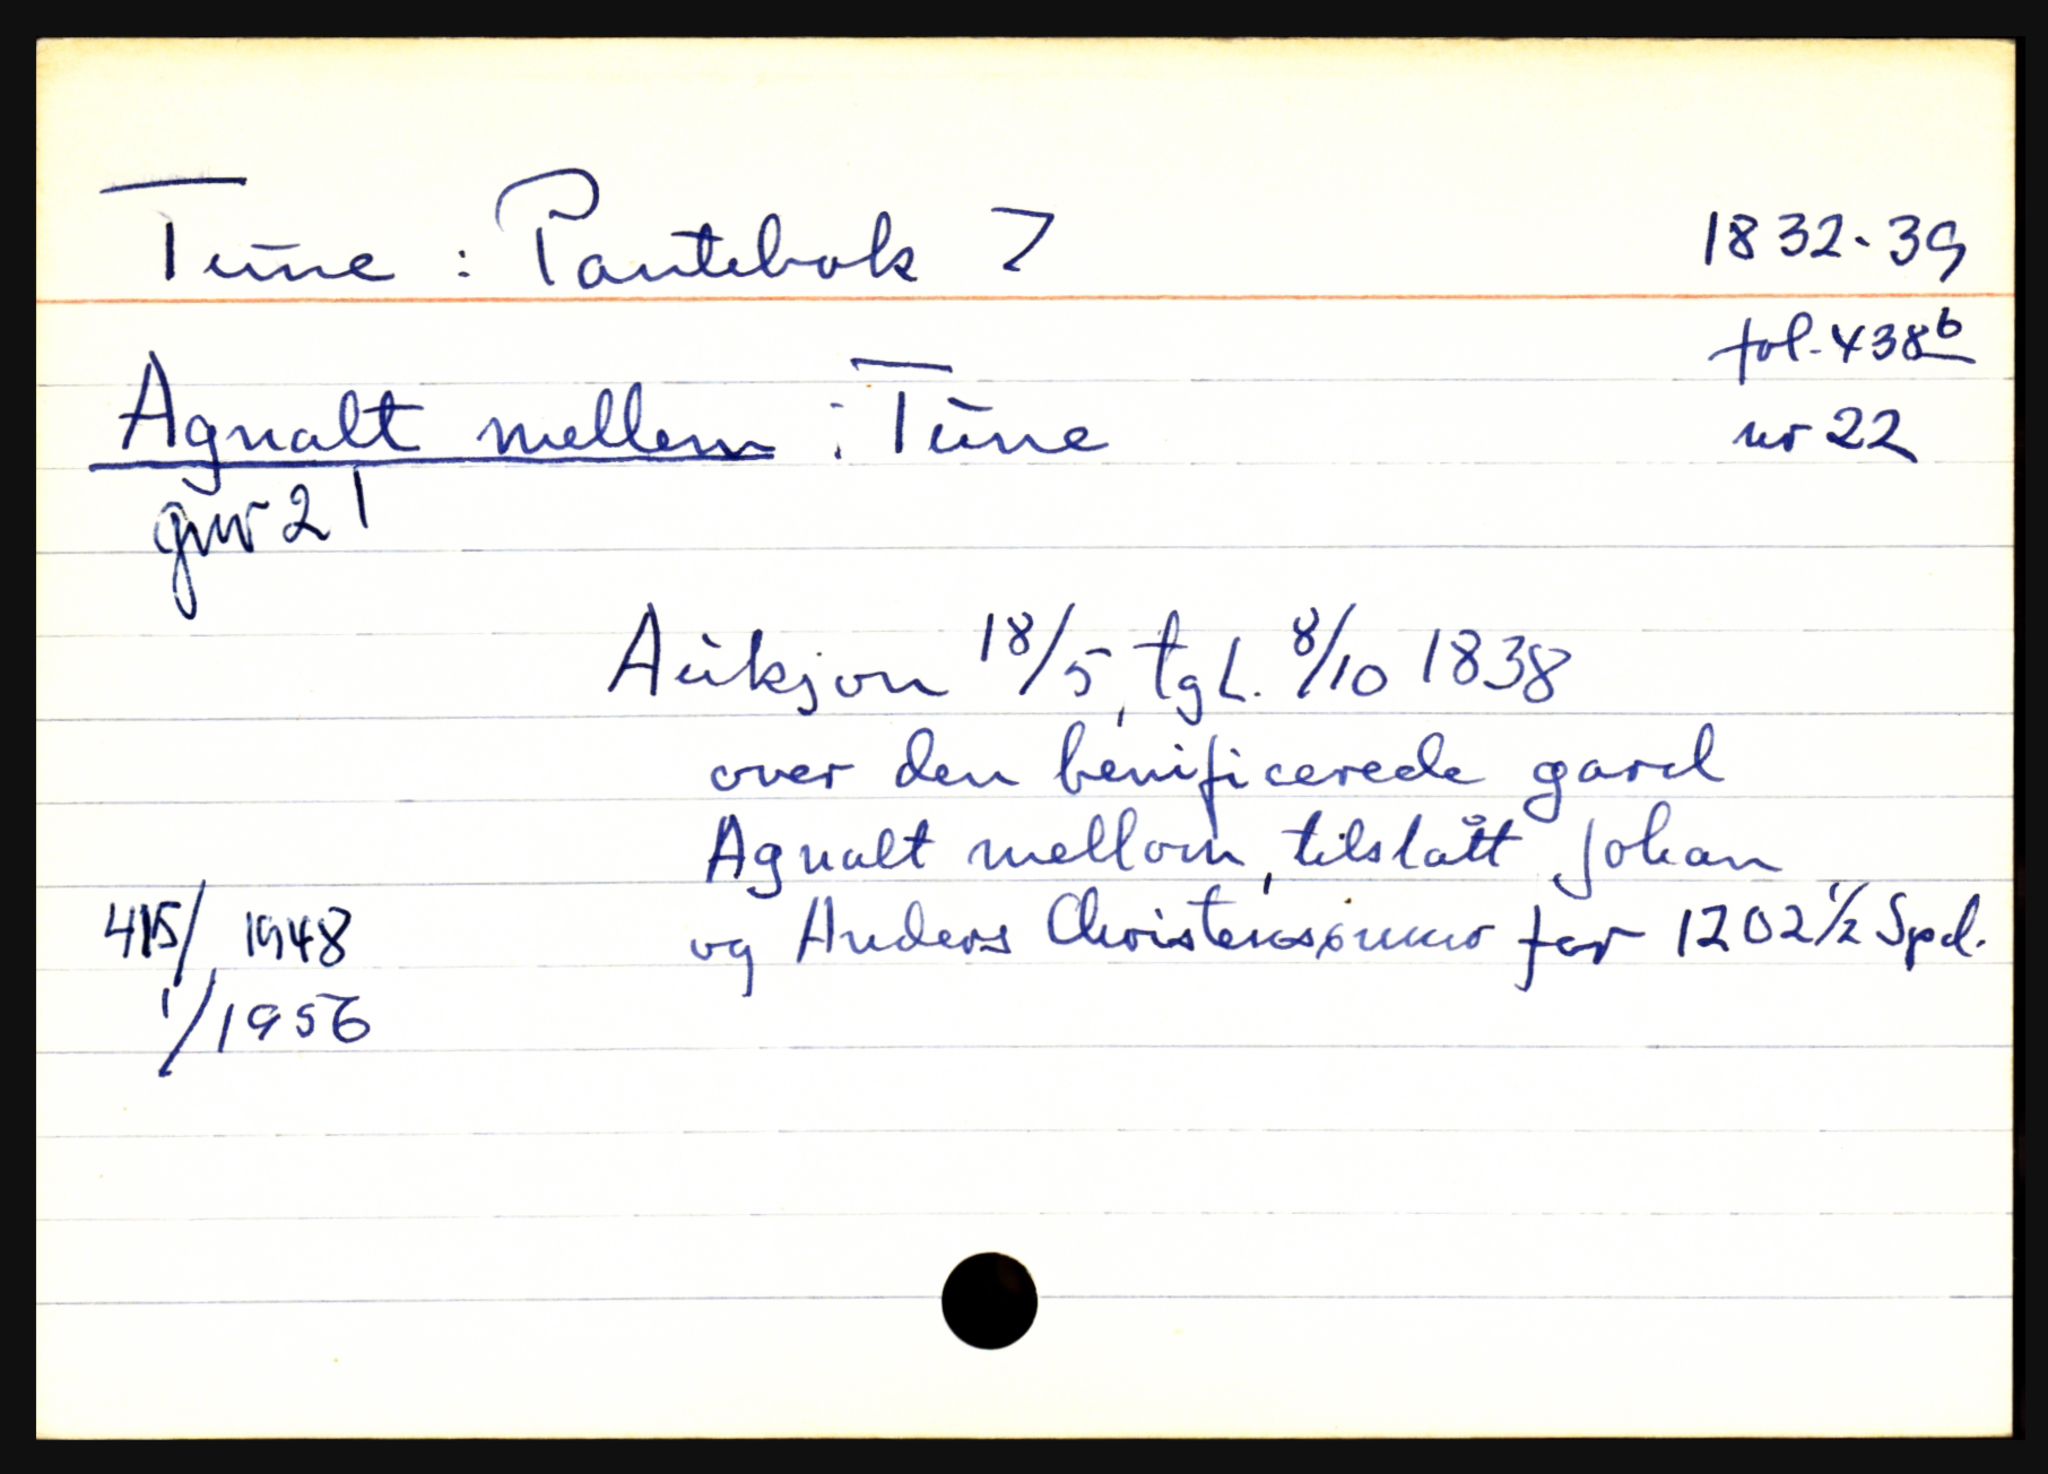 Tune : Pantebok 7 1832-39
fol. 438b
Agnalt mellem : Tune nr 22
gnr 21
Auksjon 18/5, tgl. 8/10 1838
over den benificerede gard
Agnalt mellom, tilslått Johan
415/1948 og Anders Christenssønner for 1202 1/2 Spd.
1/1956